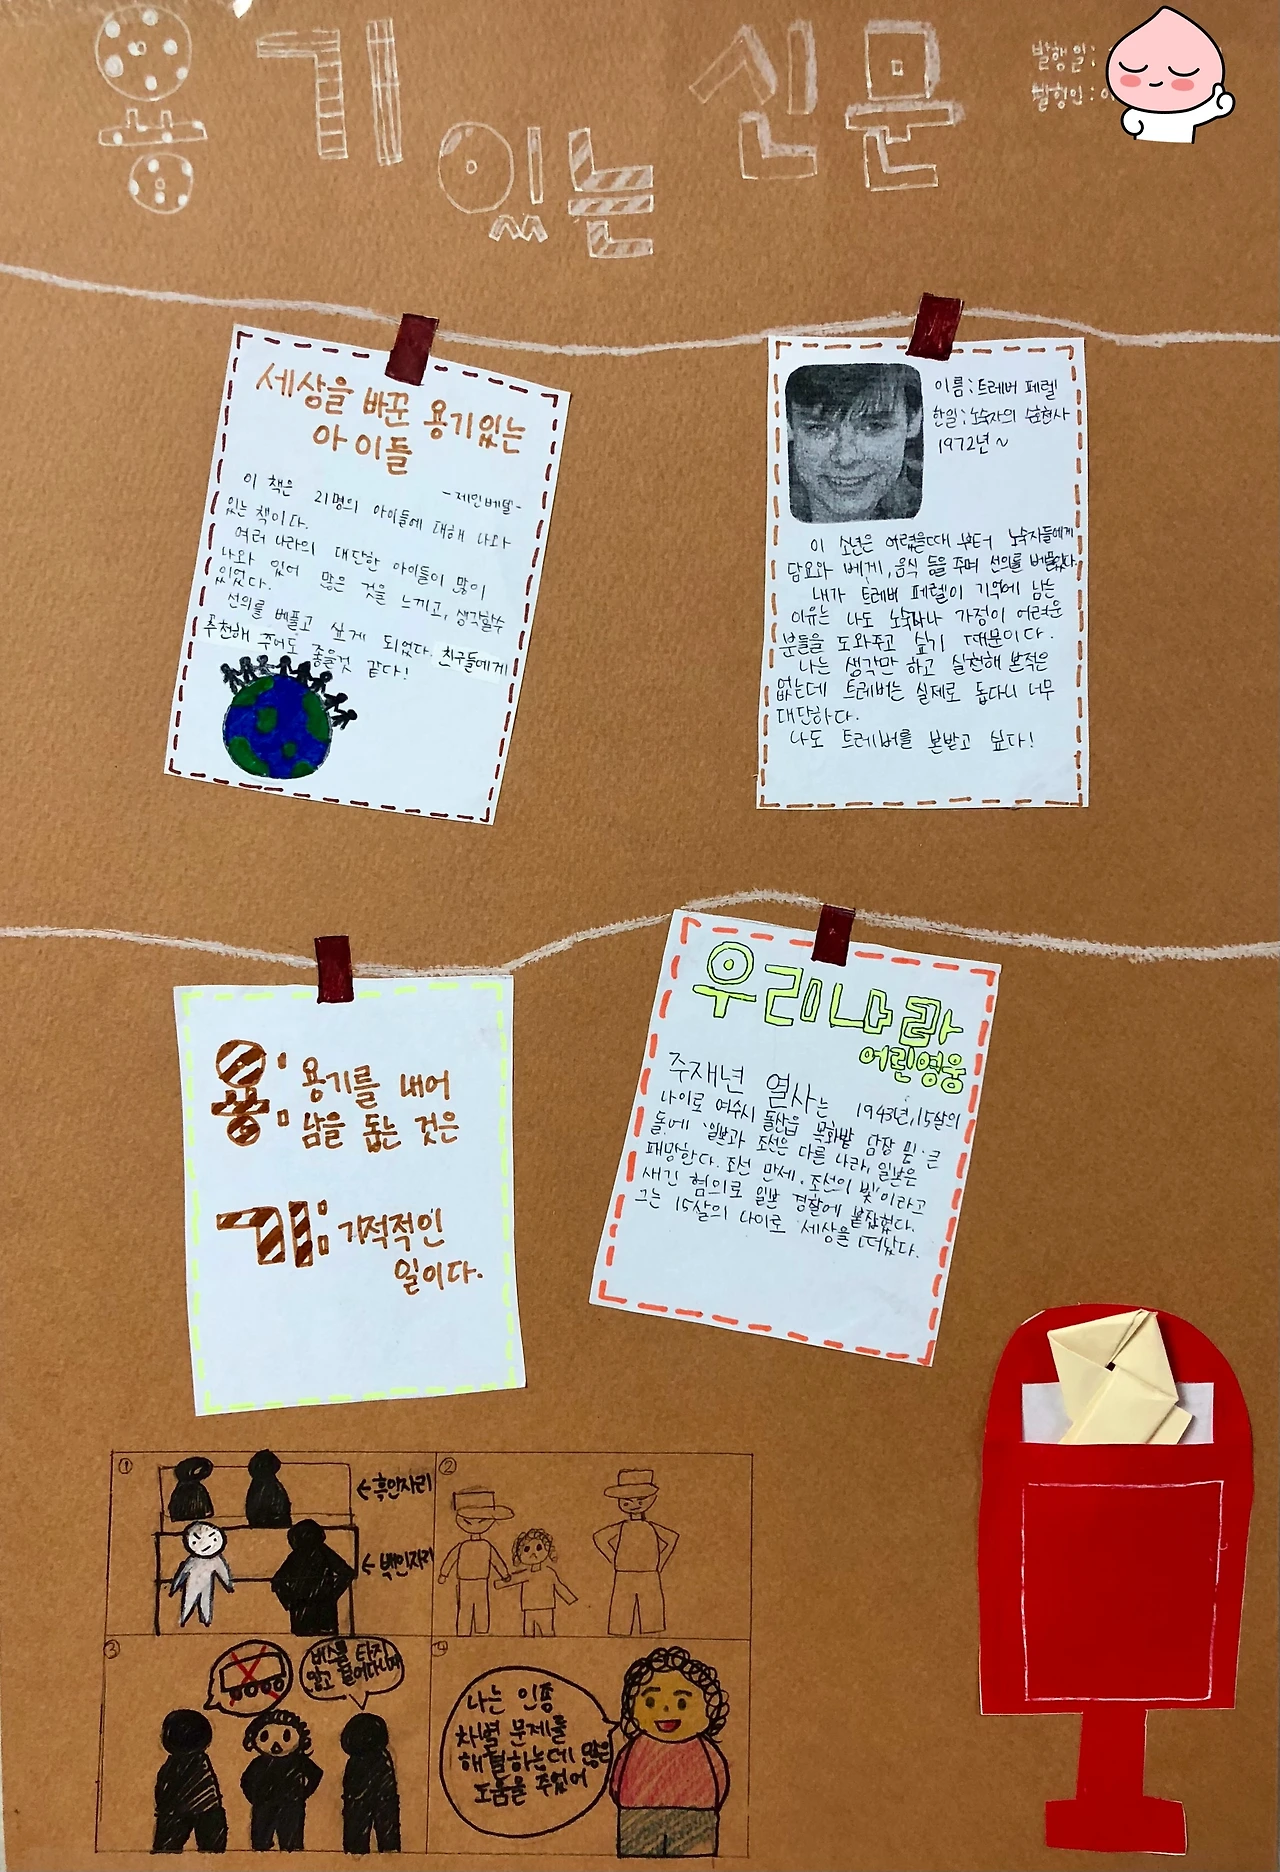 용기 있는 신문
발행일:
발행인:
세상을 바꾼 용기있는
아이들
-제인베델-
이 책은 21명의 아이들에 대해 나와
있는 책이다.
여러 나라의 대단한 아이들이 많이
나와 있어 많은 것을 느끼고, 생각할수
있었다.
선의를 베풀고 싶게 되었다. 친구들에게
추천해 주어도 좋을것 같다!
이름: 트레버 페렐
한일: 노숙자의 수호천사
1972년~
이 소년은 어렸을때 부터 노숙자들에게
담요와 베게, 음식 등을 주며 선의를 베풀었다.
내가 트레버 페렐이 기억에 남는
이유는 나도 노숙자나 가정이 어려운
분들을 도와주고 싶기 때문이다.
나는 생각만 하고 실천해 본적은
없는데 트레버는 실제로 돕다니 너무
대단하다.
나도 트레버를 본받고 싶다!
용: 용기를 내어
남을 돕는 것은
기: 기적적인
일이다.
우리나라
어린영웅
주재년 열사는 1943년, 15살의
나이로 여수시 돌산읍 목화밭 담장 밑 큰
돌에 '일본과 조선은 다른 나라, 일본은
패망한다. 조선 만세. 조선의 빛'이라고
새긴 혐의로 일본 경찰에 붙잡혔다.
그는 15살의 나이로 세상을 떠났다.
①
←흑인자리
←백인자리
②
③
버스를 타지
않고 걸어다니자
④
나는 인종
차별 문제를
해결하는데 많은
도움을 주었어